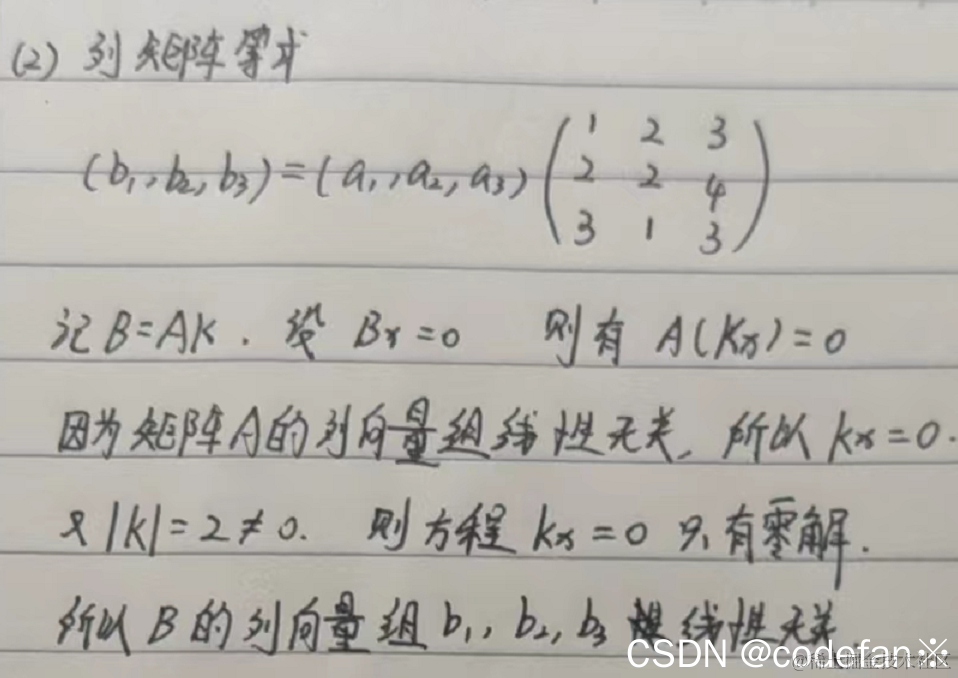 (2) 列矩阵等式
(b₁, b₂, b₃) = (a₁, a₂, a₃) ( 1 2 3
2 2 4
3 1 3 )
记 B=AK. 设 Bx=0 则有 A(Kx)=0
因为矩阵A的列向量组线性无关, 所以 kx=0.
又 |k|=2≠0. 则方程 kx=0 只有零解.
所以 B 的列向量组 b₁, b₂, b₃ 线性无关
CSDN @codefan※
@稀土掘金技术社区